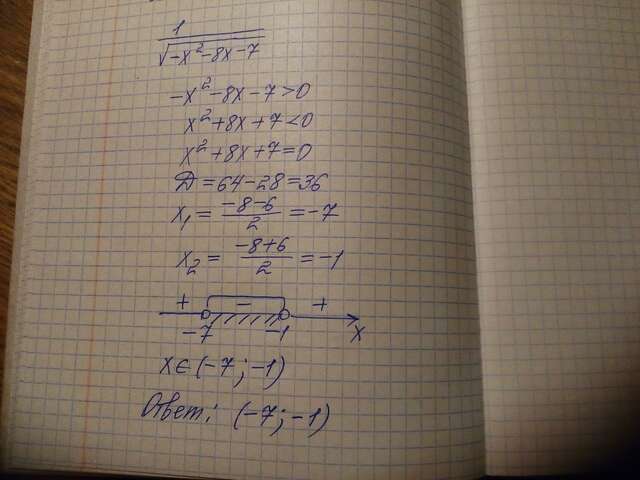 1/√(-x²-8x-7)
-x²-8x-7>0
x²+8x+7<0
x²+8x+7=0
D=64-28=36
x₁ = (-8-6)/2 = -7
x₂ = (-8+6)/2 = -1
+ - +
-7 -1 x
x∈(-7;-1)
Ответ: (-7;-1)